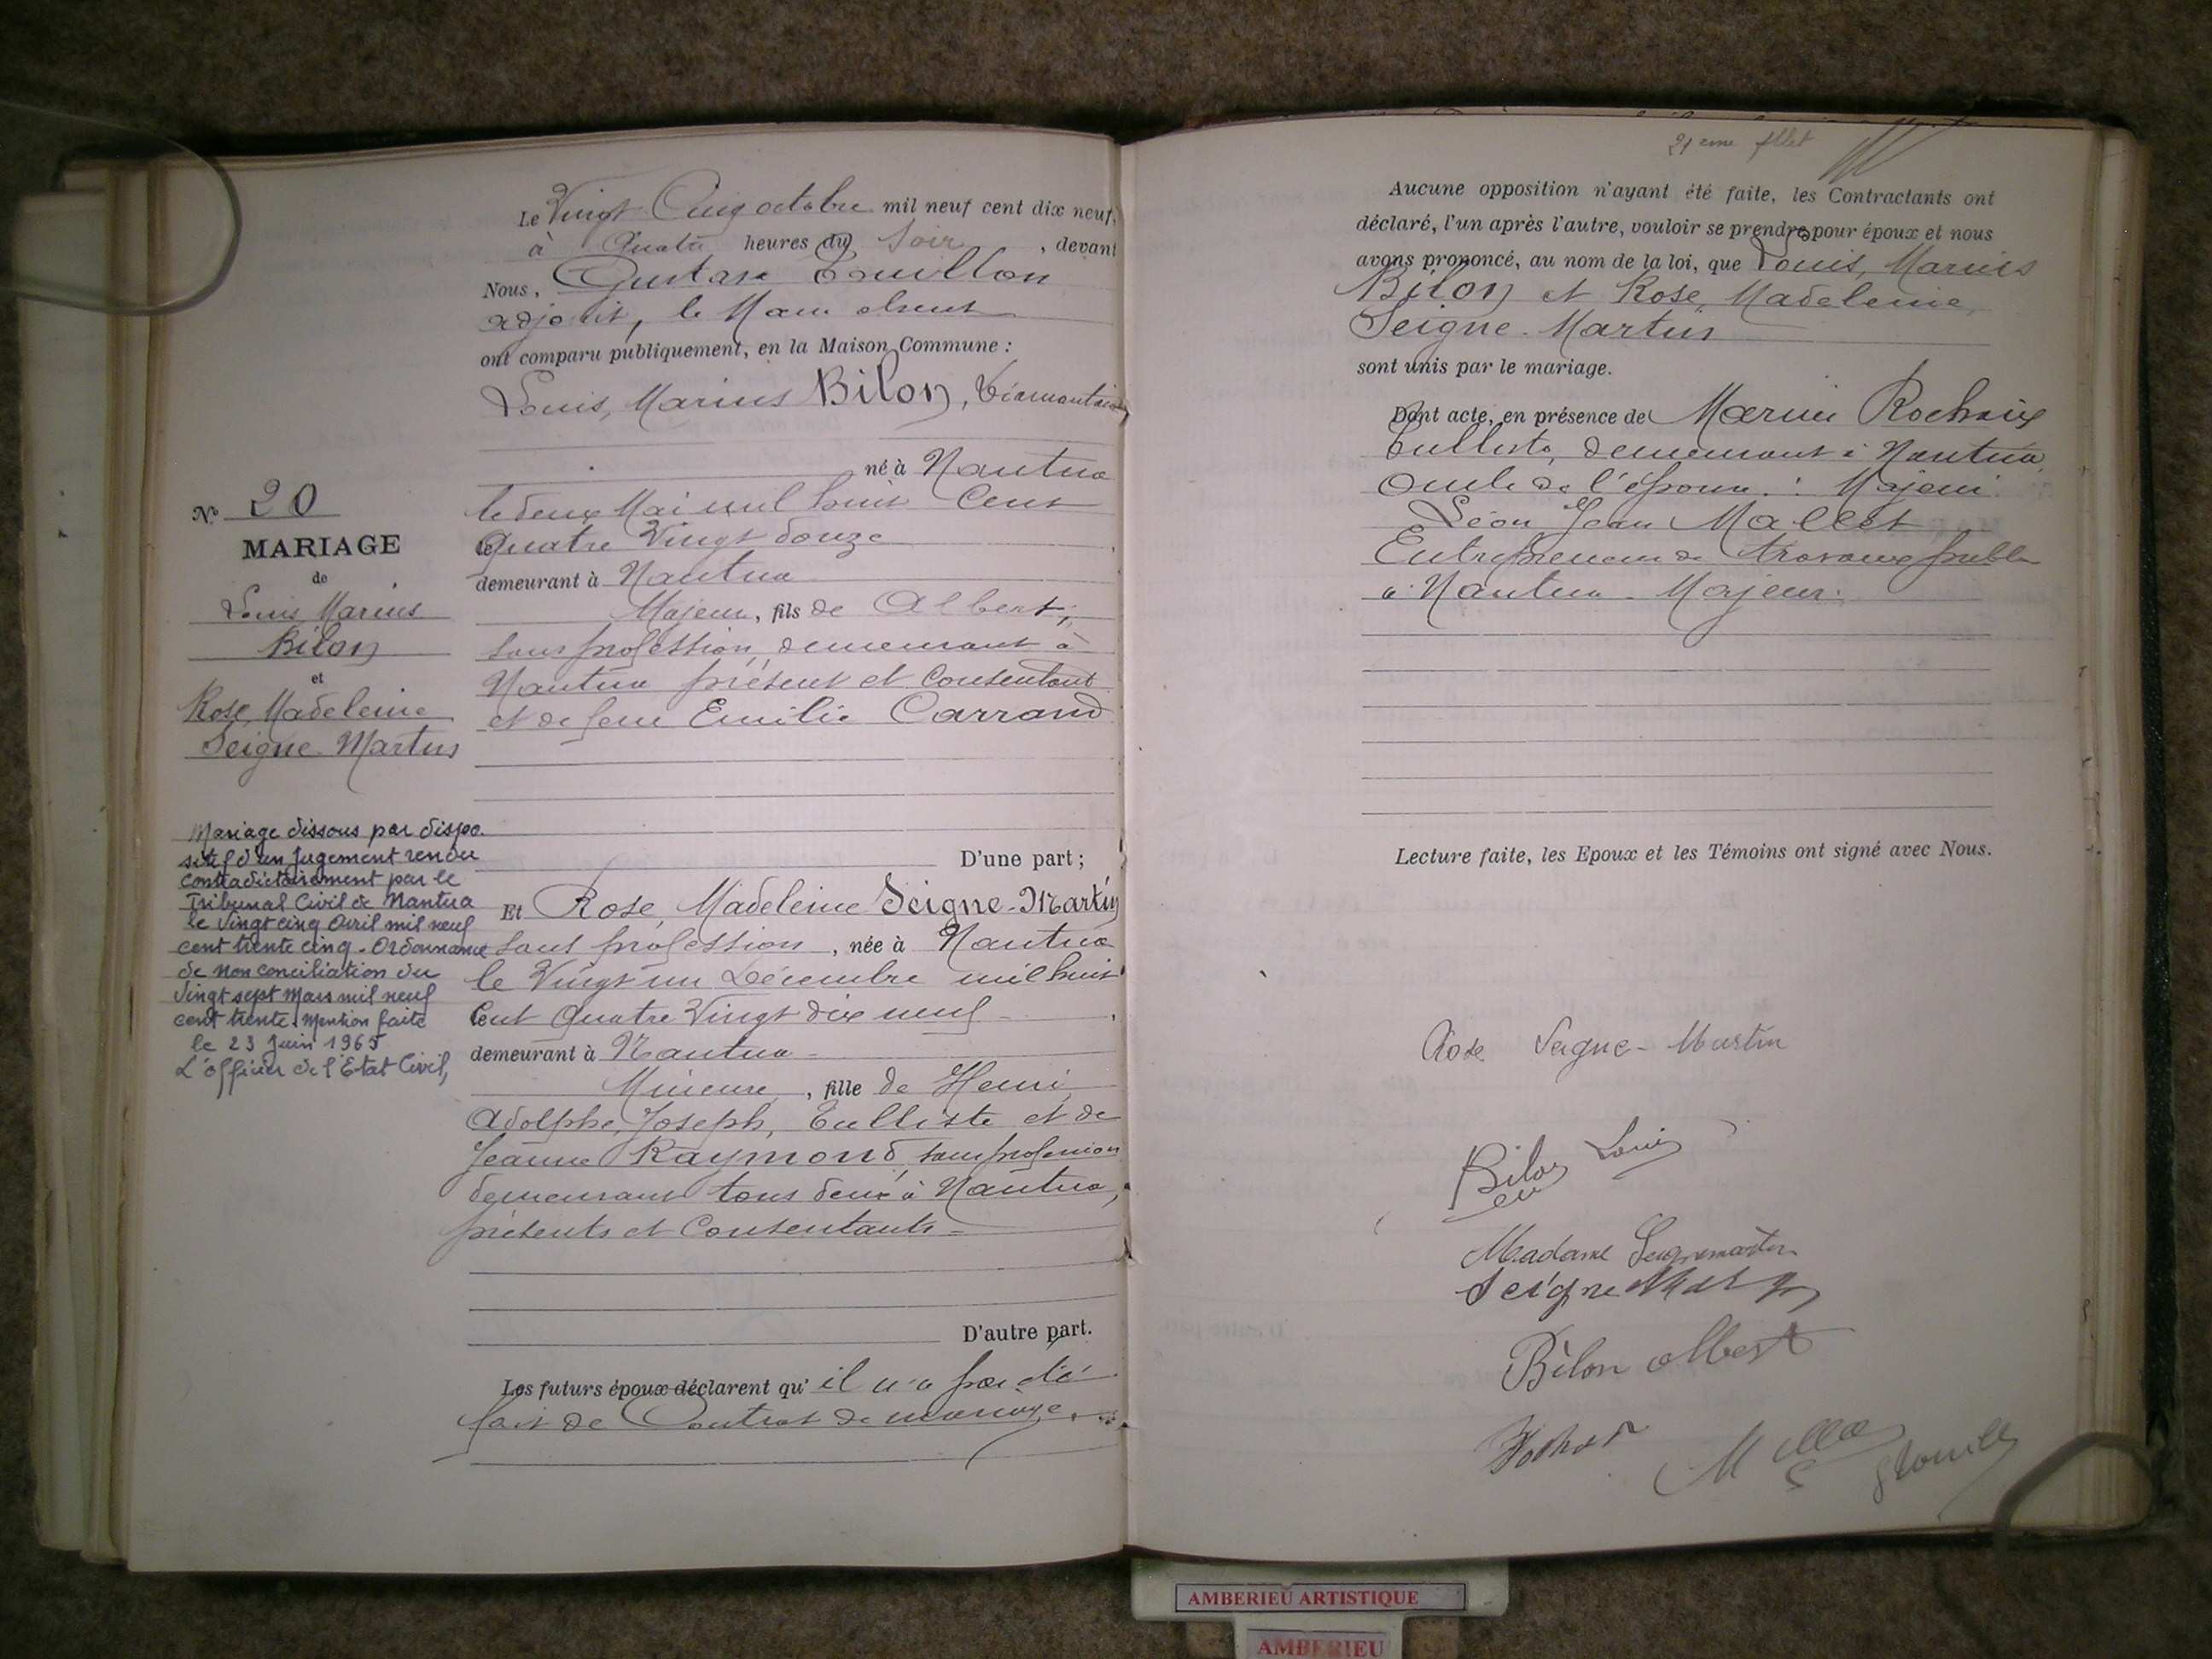 Le Vingt Cinq octobre mil neuf cent dix neuf,
à Quatre heures du Soir, devant
Nous, Gustave Touillon
adjoint, le Maire absent
ont comparu publiquement, en la Maison Commune :
Louis, Marius Bilon, Diamantaire
né à Nantua
le deux Mai mil huit Cent
Quatre Vingt douze
demeurant à Nantua
Majeur, fils de Albert,
sans profession, demeurant à
Nantua présent et Consentant
et de feue Emilie Carrand
D'une part ;
Et Rose, Madeleine Seigne-Martin
sans profession, née à Nantua
le Vingt un Décembre mil huit
Cent Quatre Vingt dix neuf
demeurant à Nantua
Mineure, fille de Henri
Adolphe, Joseph, Tulliste et de
Jeanne Raymond sans profession
demeurant tous deux à Nantua,
présents et Consentants
D'autre part.
Les futurs époux déclarent qu' il n'a pas été
fait de Contrat de mariage.
N° 20
MARIAGE
de
Louis Marius
Bilon
et
Rose Madeleine
Seigne-Martin
Mariage dissous par dispo-
sitif d'un jugement rendu
contradictoirement par le
Tribunal Civil de Nantua
le vingt cinq Avril mil neuf
cent trente cinq. Ordonnance
de non conciliation du
vingt sept Mars mil neuf
cent trente. Mention faite
le 23 Juin 1965
L'officier de l'Etat Civil,
21eme fllet
Aucune opposition n'ayant été faite, les Contractants ont
déclaré, l'un après l'autre, vouloir se prendre pour époux et nous
avons prononcé, au nom de la loi, que Louis, Marius
Bilon et Rose, Madeleine,
Seigne-Martin
sont unis par le mariage.
Dont acte, en présence de Marius Rochaix
Tulliste, demeurant à Nantua,
Oncle de l'épouse. Majeur
Léon Jean Mallet
Entrepreneur de travaux public
à Nantua. Majeur.
Lecture faite, les Epoux et les Témoins ont signé avec Nous.
Rose Seigne-Martin
Bilon Louis
Madame Seignemartin
Seigne Martin
Bilon Albert
AMBERIEU ARTISTIQUE
AMBERIEU